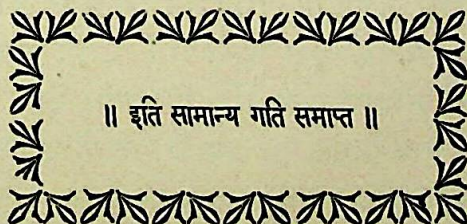 ॥ इति सामान्य गति समाप्त ॥